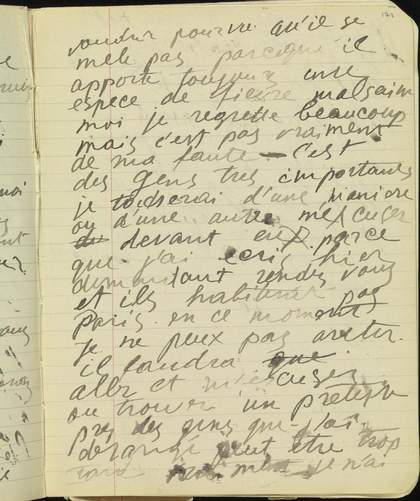 vouloir pourvu qu'il se
mele pas parceque il
apporte toujours une
espece de fievre malsaine
moi je regrette beaucoup
mais c'est pas vraiment
de ma faute — c'est
des gens tres importants
je tacherai d'une maniere
ou d'une autre m'excuser
devant eux parce
que j'ai ecris hier
demandant rendez vous
et ils habitent pas
Paris en ce moment
je ne peux pas areter.
il faudra que
aller et m'excuser
ou trouver un pretexte
pres des gens que j'ai
derangé peut être trop
je n'ai